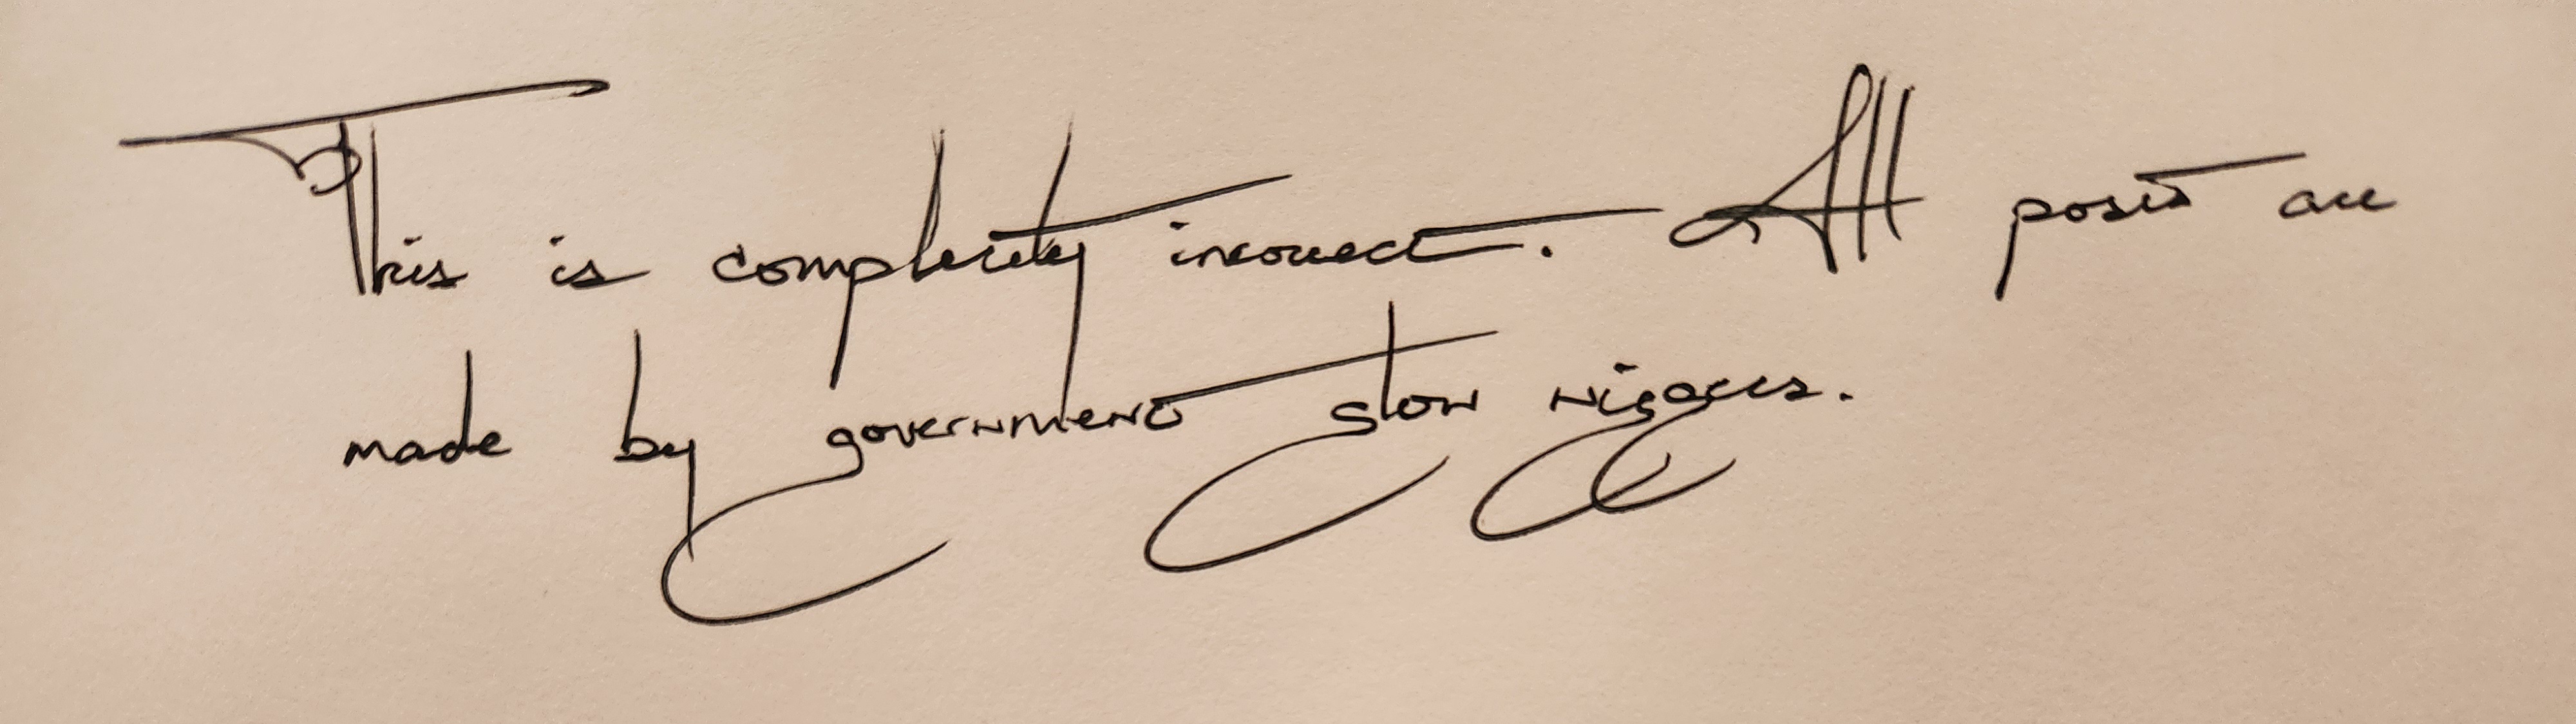 This is completely incorrect. All posts are
made by government slow niggers.